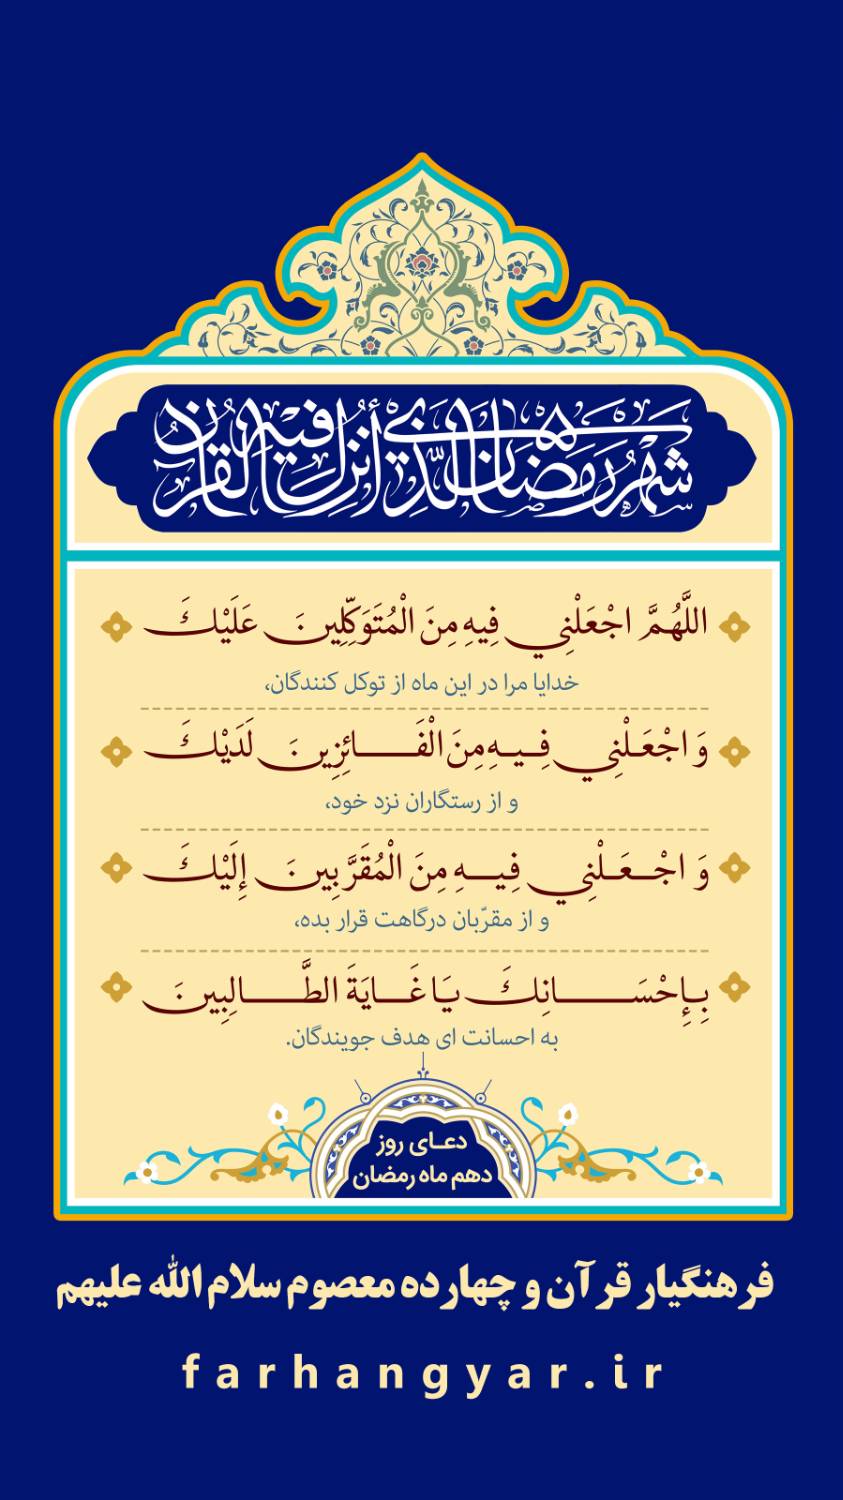 شهر رمضان الذي أنزل فيه القرآن
اللَّهُمَّ اجْعَلْنِي فِيهِ مِنَ الْمُتَوَكِّلِينَ عَلَيْكَ
خدایا مرا در این ماه از توکل کنندگان،
وَ اجْعَلْنِي فِيهِ مِنَ الْفَائِزِينَ لَدَيْكَ
و از رستگاران نزد خود،
وَ اجْعَلْنِي فِيهِ مِنَ الْمُقَرَّبِينَ إِلَيْكَ
و از مقرّبان درگاهت قرار بده،
بِإِحْسَانِكَ يَا غَايَةَ الطَّالِبِينَ
به احسانت ای هدف جویندگان.
دعای روز
دهم ماه رمضان
فرهنگیار قرآن و چهارده معصوم سلام الله علیهم
farhangyar.ir